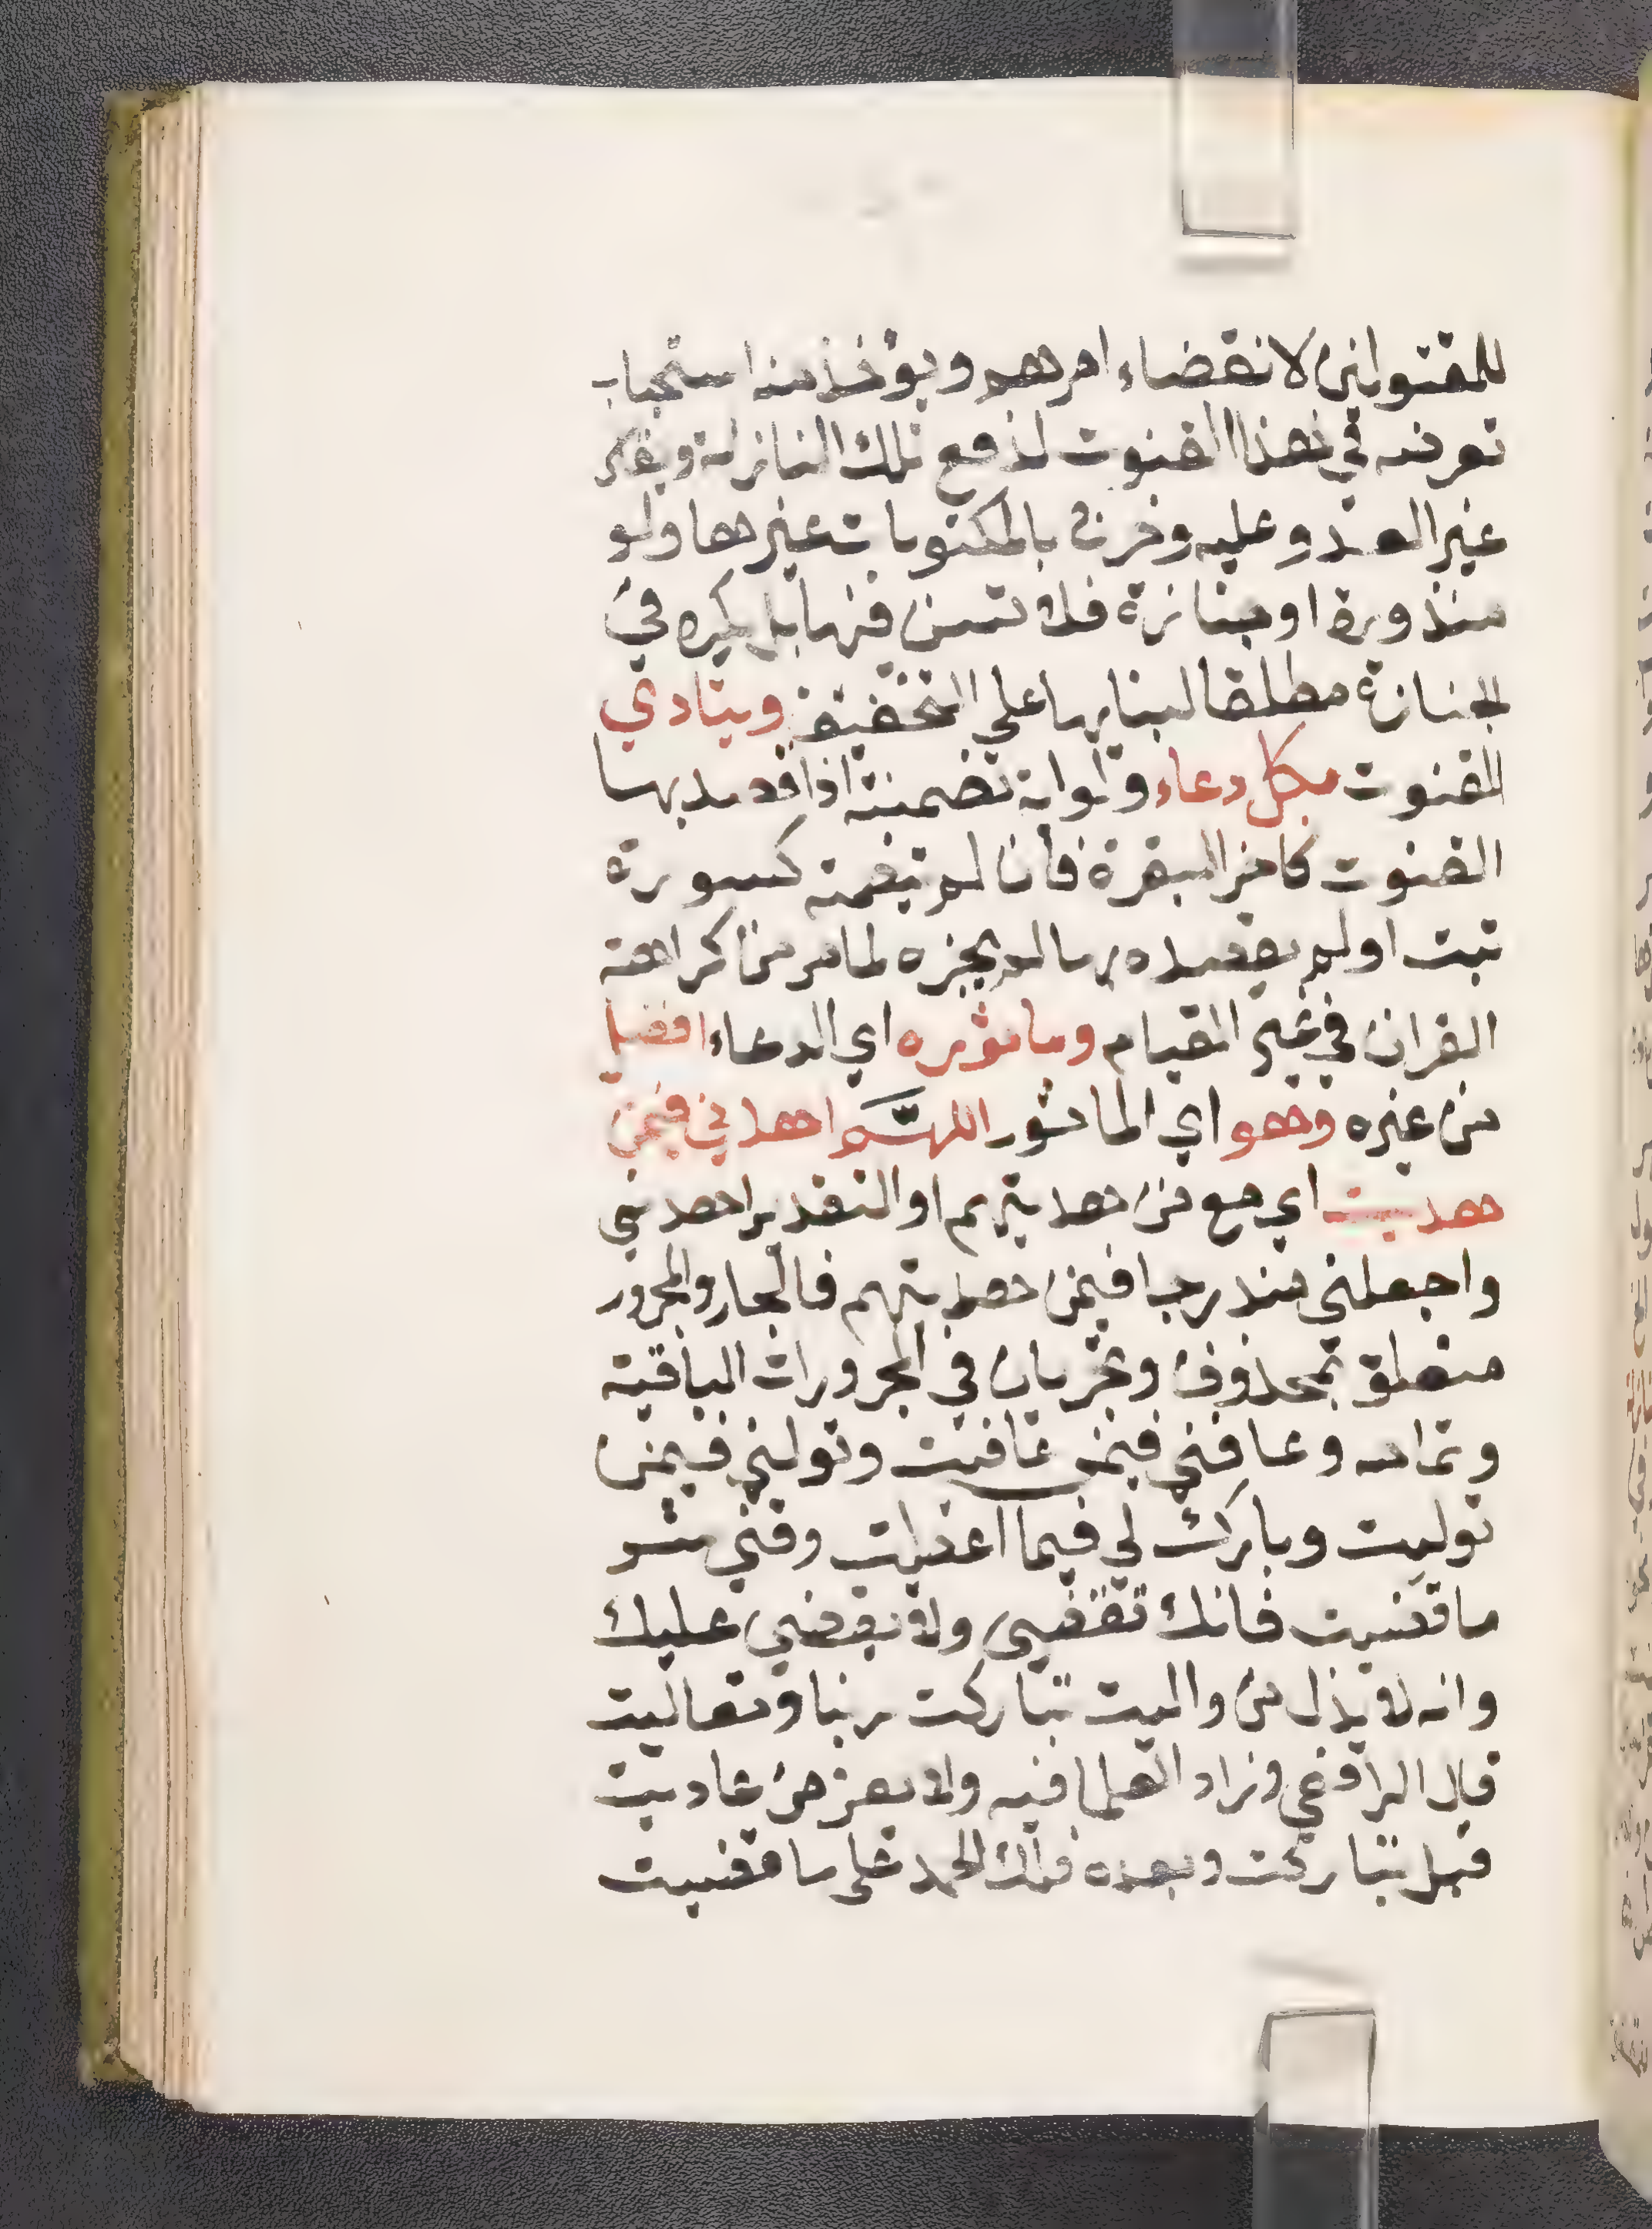 للمقتولين لانقضاء امرهم ويؤخذ منه استحباب
تعرضه في هذا القنوت لدفع تلك النازلة وبفكر
غير العدو عليه وخرج بالمكتوبات غيرها ولو
منذورة او جنازة فلا تسن فيها بل يكره في
الجنازة مطلقا لبنايها علي التخفيف ويتادي
القنوت بكل دعاء وباية تضمنته اذا قصد بها
القنوت كاخر البقرة فان لم تتضمنه كسورة
تبت او لم يقصده بها لم يجزه لما مر من كراهة
القران في غير القيام وماثوره اي الدعاء افضل
من غيره وهو اي الماثور اللهم اهدني فيمن
هديت اي مع من هديتهم او التقدير اهدني
واجعلني مندرجا فيمن هديتهم فالجار والمجرور
متعلق بمحذوف ويجريان في المجرورات الباقية
وتمامه وعافني فيمن عافيت وتولني فيمن
توليت وبارك لي فيما اعطيت وقني شر
ما قضيت فانك تقضي ولا يقضي عليك
وانه لا يذل من واليت تباركت ربنا وتعاليت
قال الرافعي وزاد العلما فيه ولا يعز من عاديت
قبل تباركت وبعده فلك الحمد علي ما قضيت